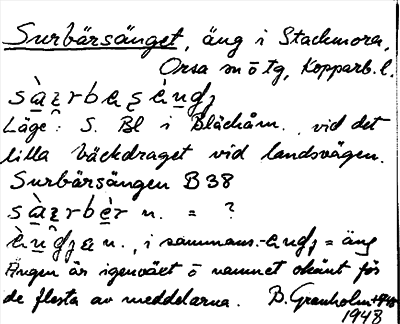 Surbärsänget, äng i Stackmora,
Orsa sn ö tg, Kopparb. l.
Läge: S. Bl i Bläckåm. vid det
lilla bäckdraget vid landsvägen.
Surbärsängen B 38
n. = ?
n., i sammans. = äng
Ängen är igenväxt o namnet okänt för
de flesta av meddelarna. B. Granholm
1948